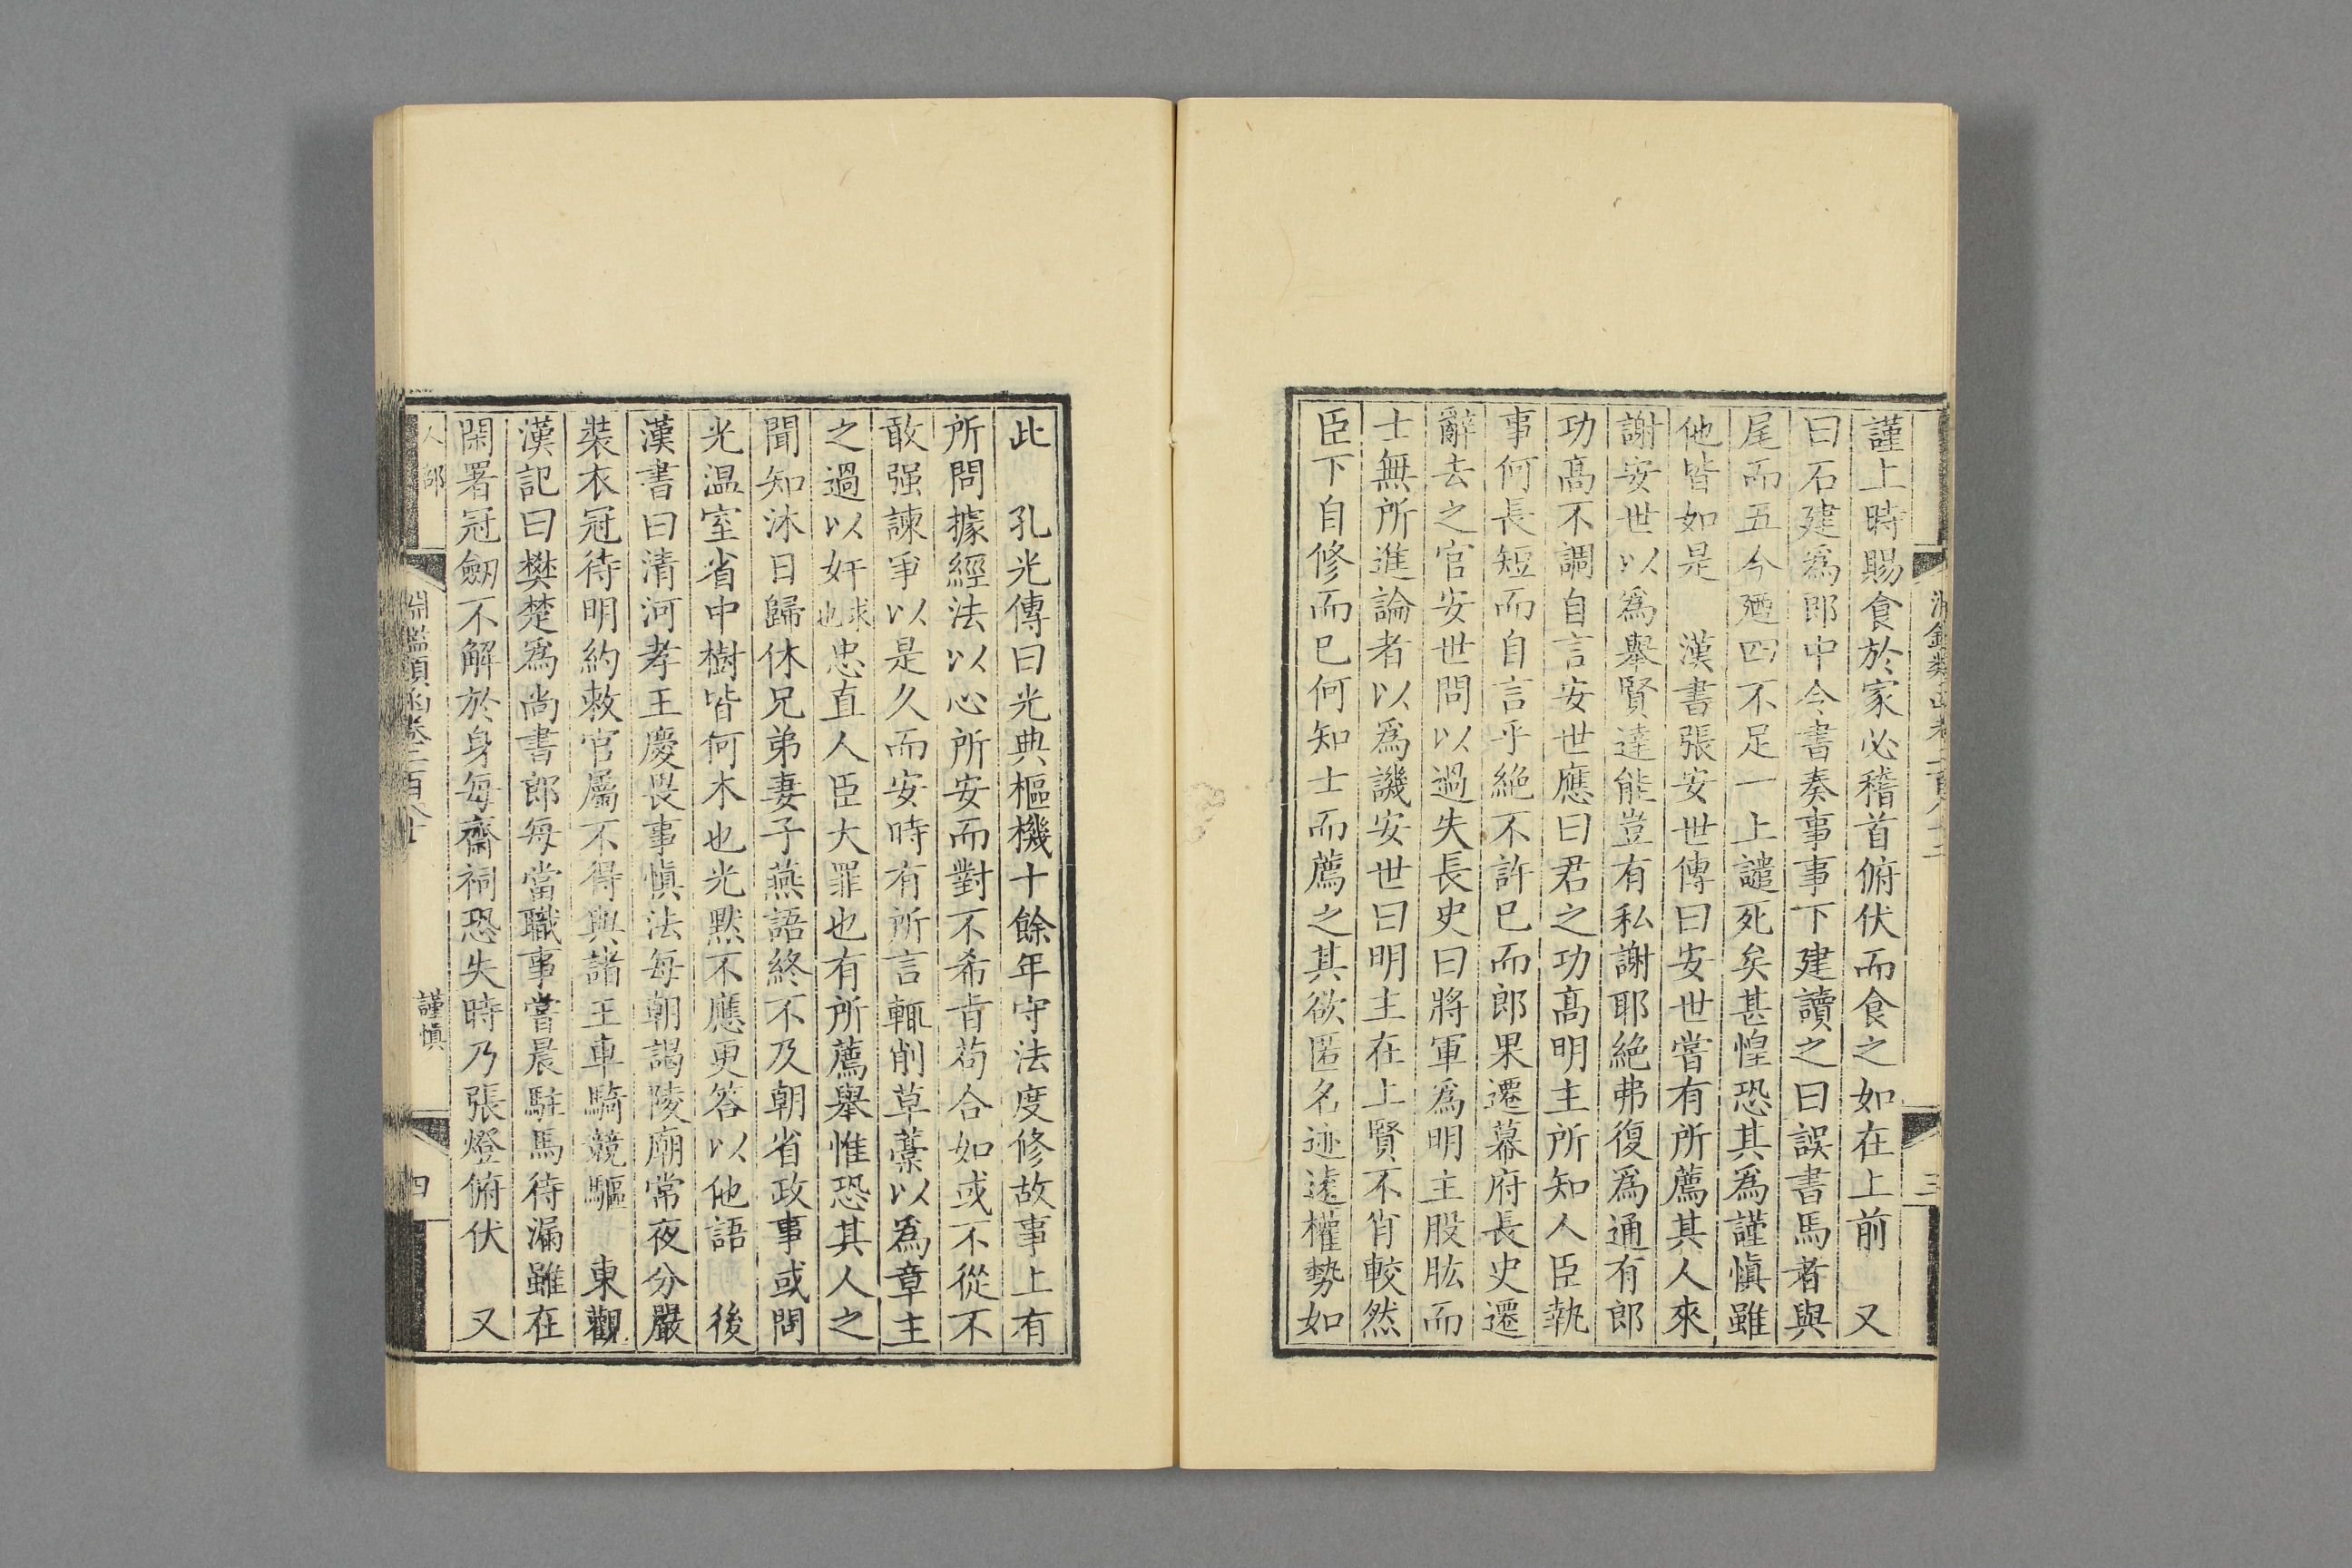 謹上時賜食於家必稽首俯伏而食之如在上前　又
曰石建爲郎中令書奏事事下建讀之曰誤書馬者與
尾而五今廼四不足一上譴死矣甚惶恐其爲謹慎雖
他皆如是　漢書張安世傳曰安世嘗有所薦其人來
謝安世以爲舉賢達能豈有私謝耶絕弗復爲通有郎
功高不調自言安世應曰君之功高明主所知人臣執
事何長短而自言乎絕不許已而郎果遷幕府長史遷
辭去之官安世問以過失長史曰將軍爲明主股肱而
士無所進論者以爲譏安世曰明主在上賢不肖較然
臣下自修而已何知士而薦之其欲匿名迹遠權勢如
三
此　孔光傳曰光典樞機十餘年守法度修故事上有
所問據經法以心所安而對不希旨苟合如或不從不
敢强諫爭以是久而安時有所言輒削草藁以爲章主
之過以奸求也忠直人臣大罪也有所薦舉惟恐其人之
聞知沐日歸休兄弟妻子燕語終不及朝省政事或問
光温室省中樹皆何木也光黙不應更答以他語　後
漢書曰清河孝王慶畏事慎法每朝謁陵廟常夜分嚴
裝衣冠待明約敕官屬不得與諸王車騎競驅　東觀
漢記曰樊楚爲尚書郎每當職事嘗晨駐馬待漏雖在
閑署冠劒不解於身每齋祠恐失時乃張燈俯伏　又
人部
淵鑑類函卷二百八十
謹慎
四